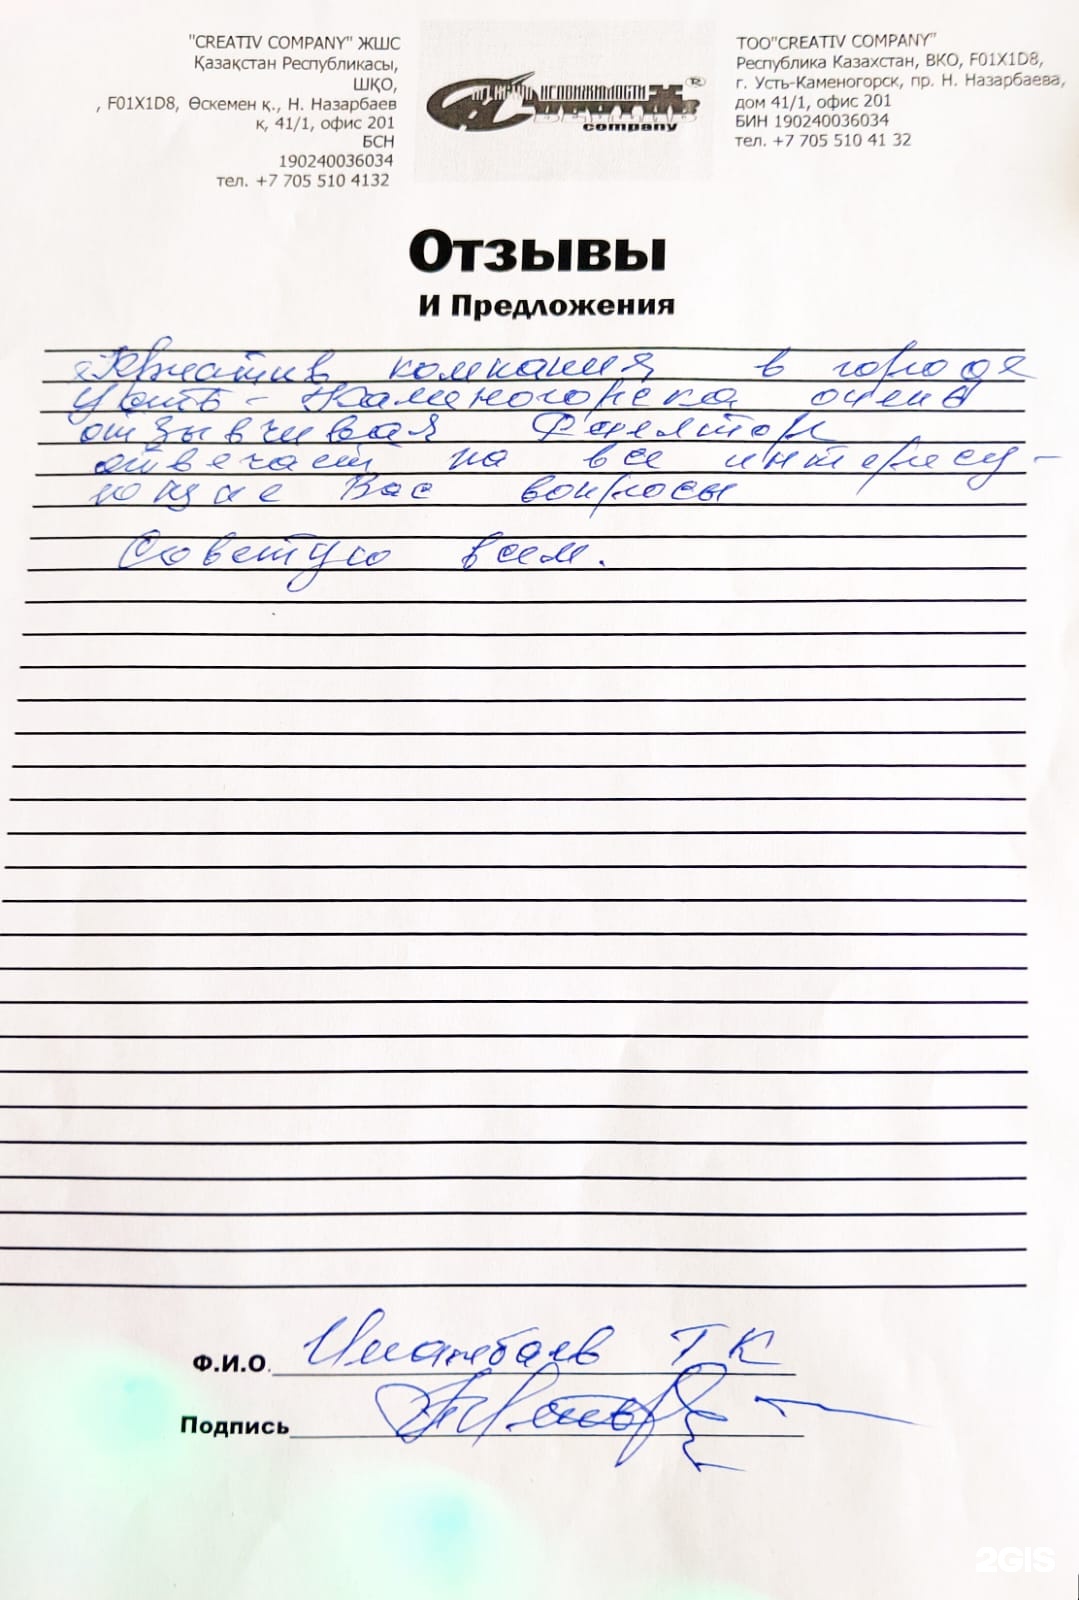 "CREATIV COMPANY" ЖШС
Қазақстан Республикасы,
ШҚО,
, F01X1D8, Өскемен қ., Н. Назарбаев
к, 41/1, офис 201
БСН
190240036034
тел. +7 705 510 4132
НЕДВИЖИМОСТИ
company
ТОО"CREATIV COMPANY"
Республика Казахстан, ВКО, F01X1D8,
г. Усть-Каменогорск, пр. Н. Назарбаева,
дом 41/1, офис 201
БИН 190240036034
тел. +7 705 510 41 32
Отзывы
И Предложения
Креатив компания в городе
Усть-Каменогорска очень
отзывчивая Риелтор
отвечает на все интересу-
ющие Вас вопросы
Советую всем.
Ф.И.О. Т К
Подпись
2GIS